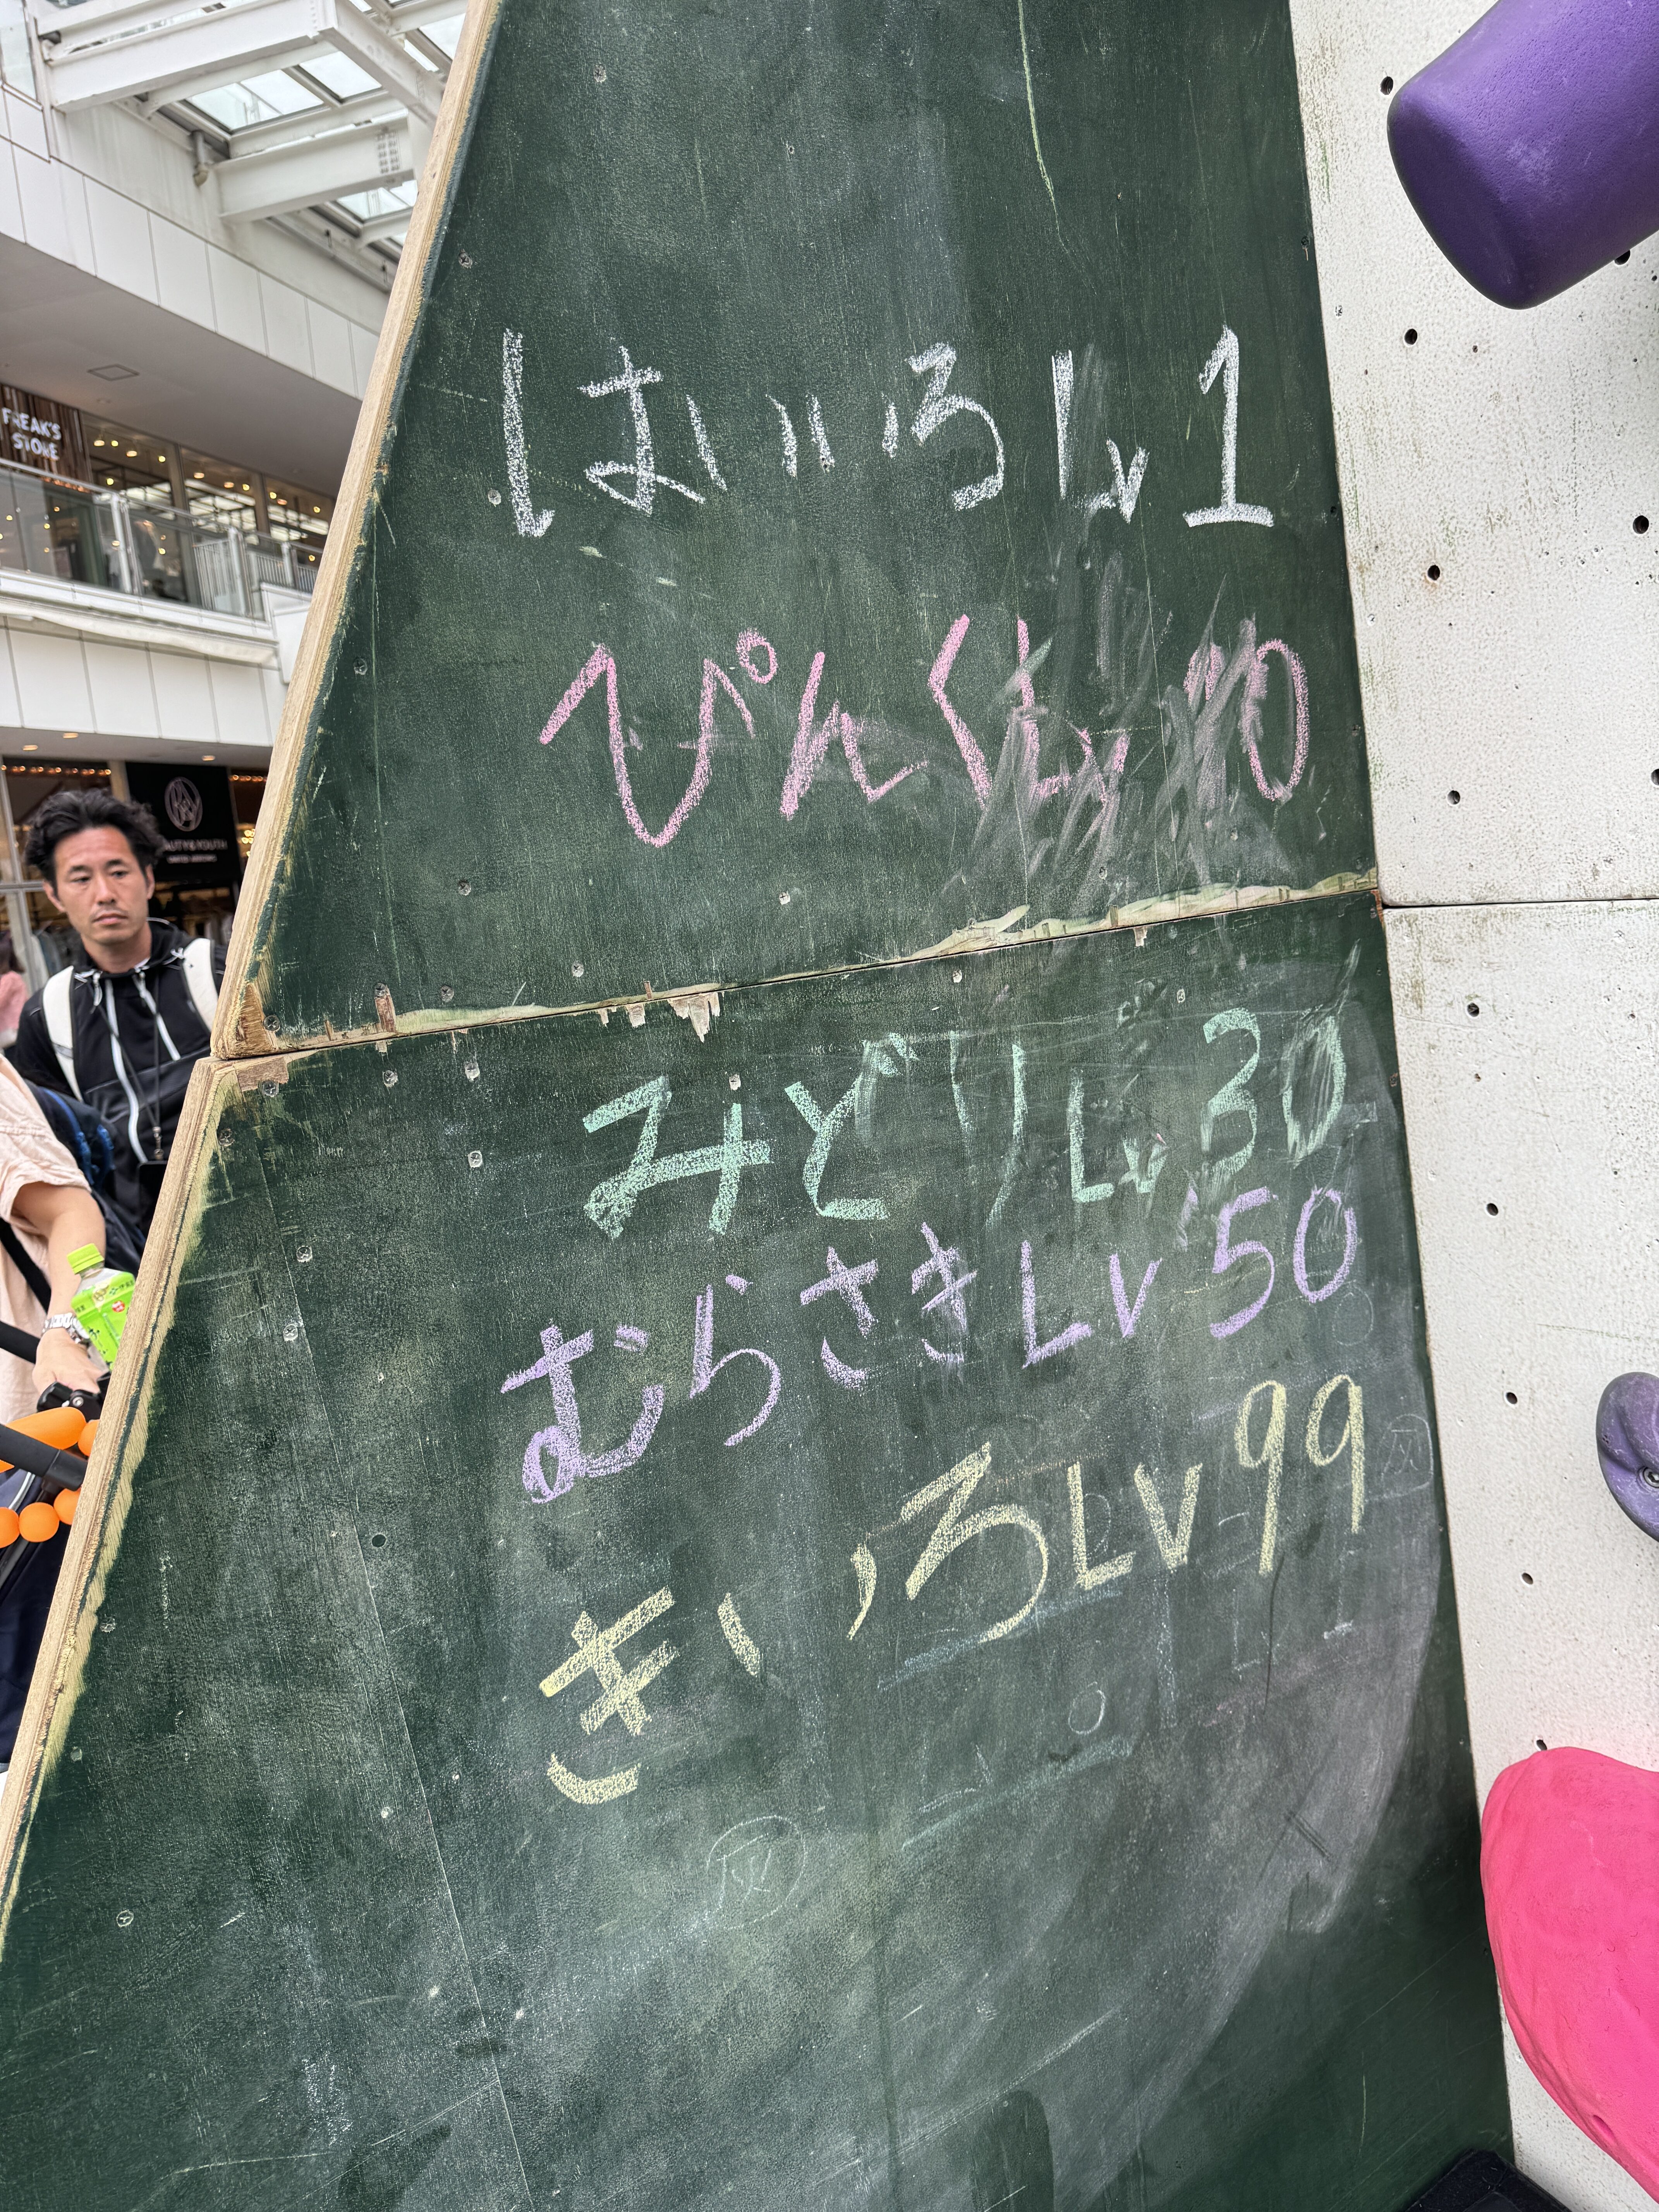 FREAK'S
STORE
はいいろ Lv 1
ぴんく Lv 10
みどり Lv 30
むらさき Lv 50
きいろ Lv 99
灰